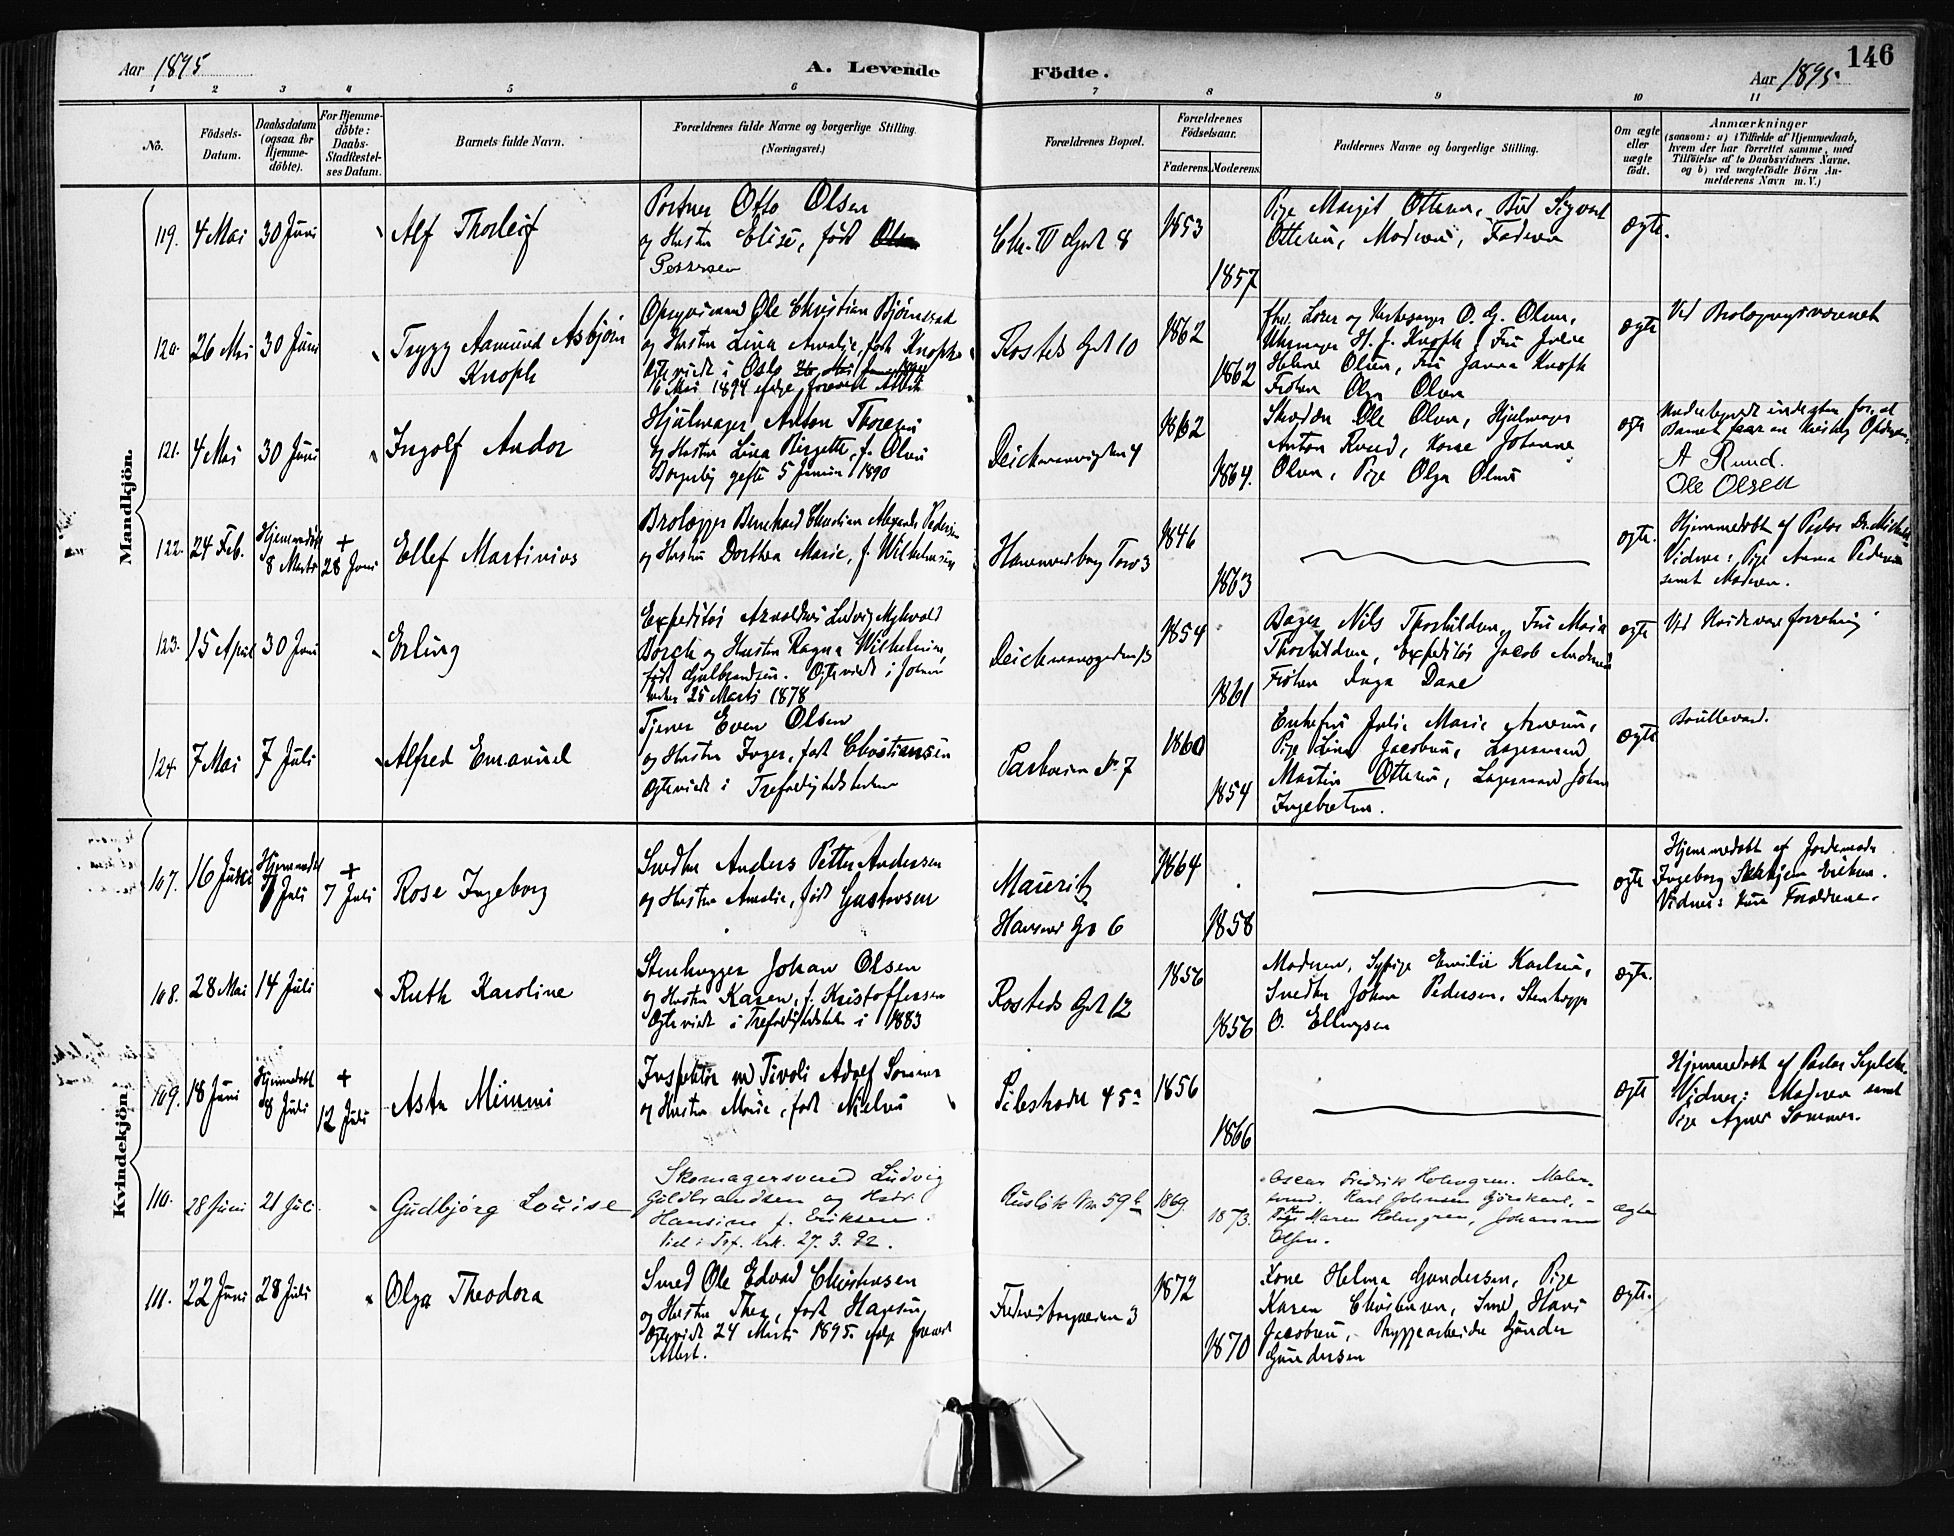 146
Aar 1895
A. Levende
Födte.
Aar 1895.
1 2 3 4 5 6 7 8 9 10 11
No.
Födsels-
Datum.
Daabsdatum
(ogsaa for
Hjemme-
döbte).
For Hjemme-
döbte:
Daabs-
Stadfæstel-
ses Datum.
Barnets fulde Navn.
Forældrenes fulde Navne og borgerlige Stilling.
(Næringsvei.)
Forældrenes Bopæl.
Forældrenes
Födselsaar.
Faderens.
Moderens.
Faddernes Navne og borgerlige Stilling.
Om ægte
eller
uægte
födt.
Anmærkninger
(saasom: a) i Tilfælde af Hjemmedaab,
hvem der har forrettet samme, med
Tilföielse af to Daabsvidners Navne,
og b) ved uægtefödte Börn An-
melderens Navn m. V.)
Mandkjön.
119. 4 Mai 30 Juni
Alf Thorleif
Portner Otto Olsen
og Hustru Elise, født Olsen
Pettersen
Chr. IV Gad 8
1853
1857
Pige Margit Ottersen, Bud Sigvart
Ottersen, Moderen, Faderen
ægte.
120. 26 Mai 30 Juni
Trygg Aamund Asbjörn
Knoph
Opsynsmand Ole Christian Bjørnstad
og Hustru Lina Amalie, født Knoph
Ægteviede i Oslo
6 Mai 1894 ifølge forevist Attest
Rosteds Gad 10
1862
1862
Lærer og Kirkesanger O. G. Olsen,
H. J. Knoph, Fru Julie
Helene Olsen, Fru Janna Knoph
Frøken Olga Olsen
ægte
121. 4 Mai 30 Juni
Ingolf Andor
Hjulmager Anton Thoresen
og Hustru Lina Birgette, f. Olsen
gifte 5 Januar 1890
Deichmannsgden 4
1862
1864.
Ole Olsen, Hjulmager
Anton Ruud, Kone Johanne
Olsen, Pige Olga Olsen
ægte
A Ruud.
Ole Olsen
122. 24 Feb. Hjemmedøbt
8 Marts
+
28 Juni
Ellef Martinius
Brolægger Bernhard Christian Pedersen
og Hustru Dorthea Marie, f. Wilhelmsen
Hammersborg Torv 3
1846
1863
ægte.
Hjemmedøbt af Pastor Dr. Michelet
Vidner: Pige Anna Pedersen
samt Moderen.
123. 15 April 30 Juni
Erling
Expeditør Arnoldus Ludvig
Borch og Hustru Ragna Wilhelmine,
født Gulbrandsen. Ægteviede i Johannes
kirken 25 Marts 1878
Deichmannsgaden 13
1854
1861
Bager Nils Thorkildsen, Fru Maria
Thorkildsen, Expeditør Jacob Andersen
Frøken Inga Dane
ægte
124. 7 Mai 7 Juli
Alfred Emanuel
Tjener Even Olsen
og Hustru Inger, født Christiansen
Ægteviede i Trefoldighedskirken
Parkveien Nr. 7
1860
1854
Enkefru Julie Marie Arnesen,
Pige Lina Jacobsen, Lagermand
Martin Ottersen, Lagermand Johan
Ingebretsen.
ægte
Boullevard.
Kvindekjön.
107. 16 Juni Hjemmedøbt
7 Juli
+
7 Juli
Rose Ingeborg
Snedker Anders Petter Andersen
og Hustru Amalie, født Gustavsen
Mauritz
Hansens Gd 6
1864
1858
ægte
Hjemmedøbt af Jordemoder
Ingeborg
Vidner: kun Forældrene.
108. 28 Mai 14 Juli
Ruth Karoline
Stenhugger Johan Olsen
og Hustru Karen, f. Kristoffersen
Ægteviede i Trefoldighedskirken i 1883
Rosteds Gad 12
1856
1856
Moderen, Sypige Emilie Karlsen,
Snedker Johan Pedersen, Stenhugger
O. Ellingsen
ægte.
109. 18 Juni Hjemmedøbt
8 Juli
+
12 Juli
Asta Mimmi
Inspektør ved Tivoli Adolf Sommer
og Hustru Marie, født Nielsen
Pilestrædet 45a
1856
1866
ægte
Hjemmedøbt af Pastor
Vidner: Moderen samt
Pige Agnes Sommer.
110. 28 Juni 21 Juli.
Gudbjørg Louise
Skomagersvend Ludvig
Guldbrandsen og Hstr.
Hansine f. Eriksen.
Viet i Tref. Krk. 27. 3. 92.
Ruslök Nr 59 b
1869
1873.
Oscar Fredrik Holmgren. Maler-
svend. Karl Johnsen
Maren Holmgren, Johanne
Olsen.
ægte
111. 22 Juni 28 Juli
Olga Theodora
Smed Ole Edvard Christensen
og Hustru Thea, født Hansen
Ægteviede 24 Marts 1895 ifølge forevist
Attest.
Fredensborgveien 3
1872
1870
Kone Helma Gundersen, Pige
Karen Christensen, Smed Hans
Jacobsen, Bryggearbeider Gunder
Gundersen
ægte.